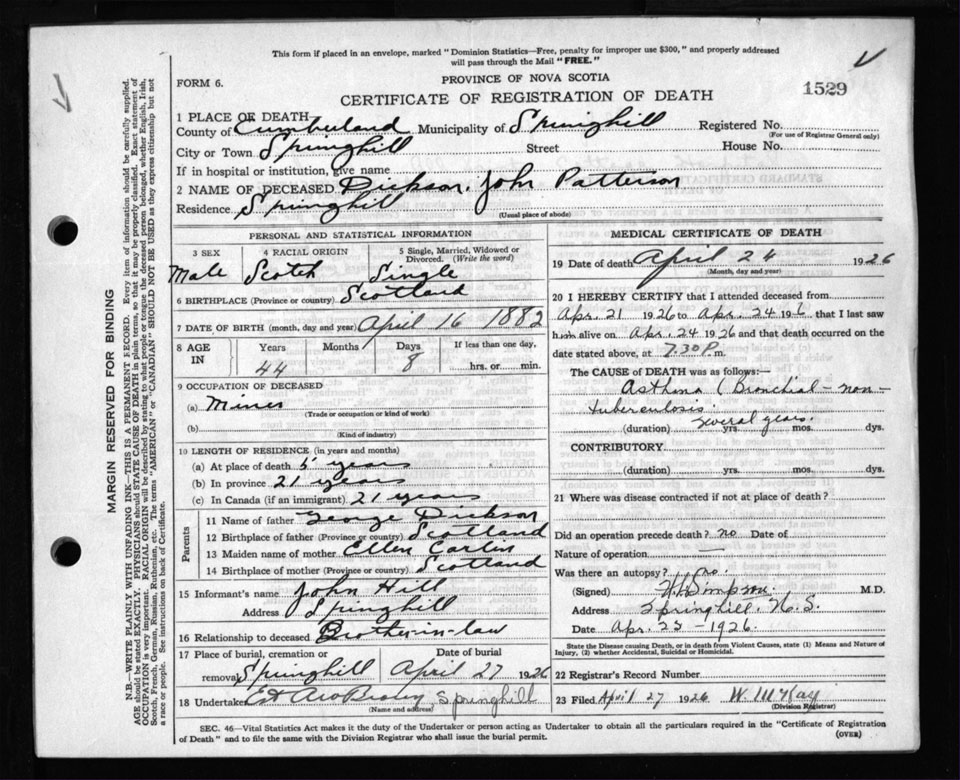 This form if placed in an envelope, marked "Dominion Statistics—Free, penalty for improper use $300," and properly addressed
will pass through the Mail "FREE."
FORM 6.
PROVINCE OF NOVA SCOTIA
1529
CERTIFICATE OF REGISTRATION OF DEATH
1 PLACE OF DEATH
County of Cumberland Municipality of Springhill Registered No.
(For use of Registrar General only)
City or Town Springhill Street House No.
If in hospital or institution, give name
2 NAME OF DECEASED Dickson, John Patterson
Residence Springhill
(Usual place of abode)
PERSONAL AND STATISTICAL INFORMATION
3 SEX 4 RACIAL ORIGIN 5 Single, Married, Widowed or Divorced. (Write the word)
Male Scotch Single
6 BIRTHPLACE (Province or country) Scotland
7 DATE OF BIRTH (month, day and year) April 16 1882
8 AGE IN Years Months Days If less than one day,
44 8 hrs. or min.
9 OCCUPATION OF DECEASED
(a) Miner
(Trade or occupation or kind of work)
(b)
(Kind of industry)
10 LENGTH OF RESIDENCE (in years and months)
(a) At place of death 5 years
(b) In province 21 years
(c) In Canada (if an immigrant) 21 years
Parents
11 Name of father George Dickson
12 Birthplace of father (Province or country) Scotland
13 Maiden name of mother Ellen
14 Birthplace of mother (Province or country) Scotland
15 Informant's name John Hill
Address Springhill
16 Relationship to deceased Brother-in-law
17 Place of burial, cremation or removal Date of burial
Springhill April 27 1926
18 Undertaker Springhill
(Name and address)
MEDICAL CERTIFICATE OF DEATH
19 Date of death April 24 1926
(Month, day and year)
20 I HEREBY CERTIFY that I attended deceased from
Apr. 21 1926 to Apr. 24 1926, that I last saw
him alive on Apr. 24 1926 and that death occurred on the
date stated above, at 7.30 P. m.
The CAUSE of DEATH was as follows:—
Asthma (Bronchial – non –
tuberculosis
(duration) several years. yrs. mos. dys.
CONTRIBUTORY
(duration) yrs. mos. dys.
21 Where was disease contracted if not at place of death?
Did an operation precede death? no Date of
Nature of operation —
Was there an autopsy? no.
(Signed) Simpson M.D.
Address Springhill. N.S.
Date Apr. 25 – 1926.
State the Disease causing Death, or in death from Violent Causes, state (1) Means and Nature of
Injury, (2) whether Accidental, Suicidal or Homicidal.
22 Registrar's Record Number
23 Filed April 27 1926 W. McKay
(Division Registrar)
SEC. 46—Vital Statistics Act makes it the duty of the Undertaker or person acting as Undertaker to obtain all the particulars required in the "Certificate of Registration
of Death" and to file the same with the Division Registrar who shall issue the burial permit.
(OVER)
MARGIN RESERVED FOR BINDING
N.B.—WRITE PLAINLY WITH UNFADING INK—THIS IS A PERMANENT RECORD. Every item of information should be carefully supplied.
AGE should be stated EXACTLY. PHYSICIANS should STATE CAUSE OF DEATH in plain terms, so that it may be properly classified. Exact statement of
OCCUPATION is very important. RACIAL ORIGIN will be described by stating to what people or tongue the deceased person belonged, whether English, Irish,
Scotch, French, German, Russian, Ruthenian, etc. The terms "AMERICAN" or "CANADIAN" SHOULD NOT BE USED as they express citizenship but not
a race or people. See instructions on back of Certificate.